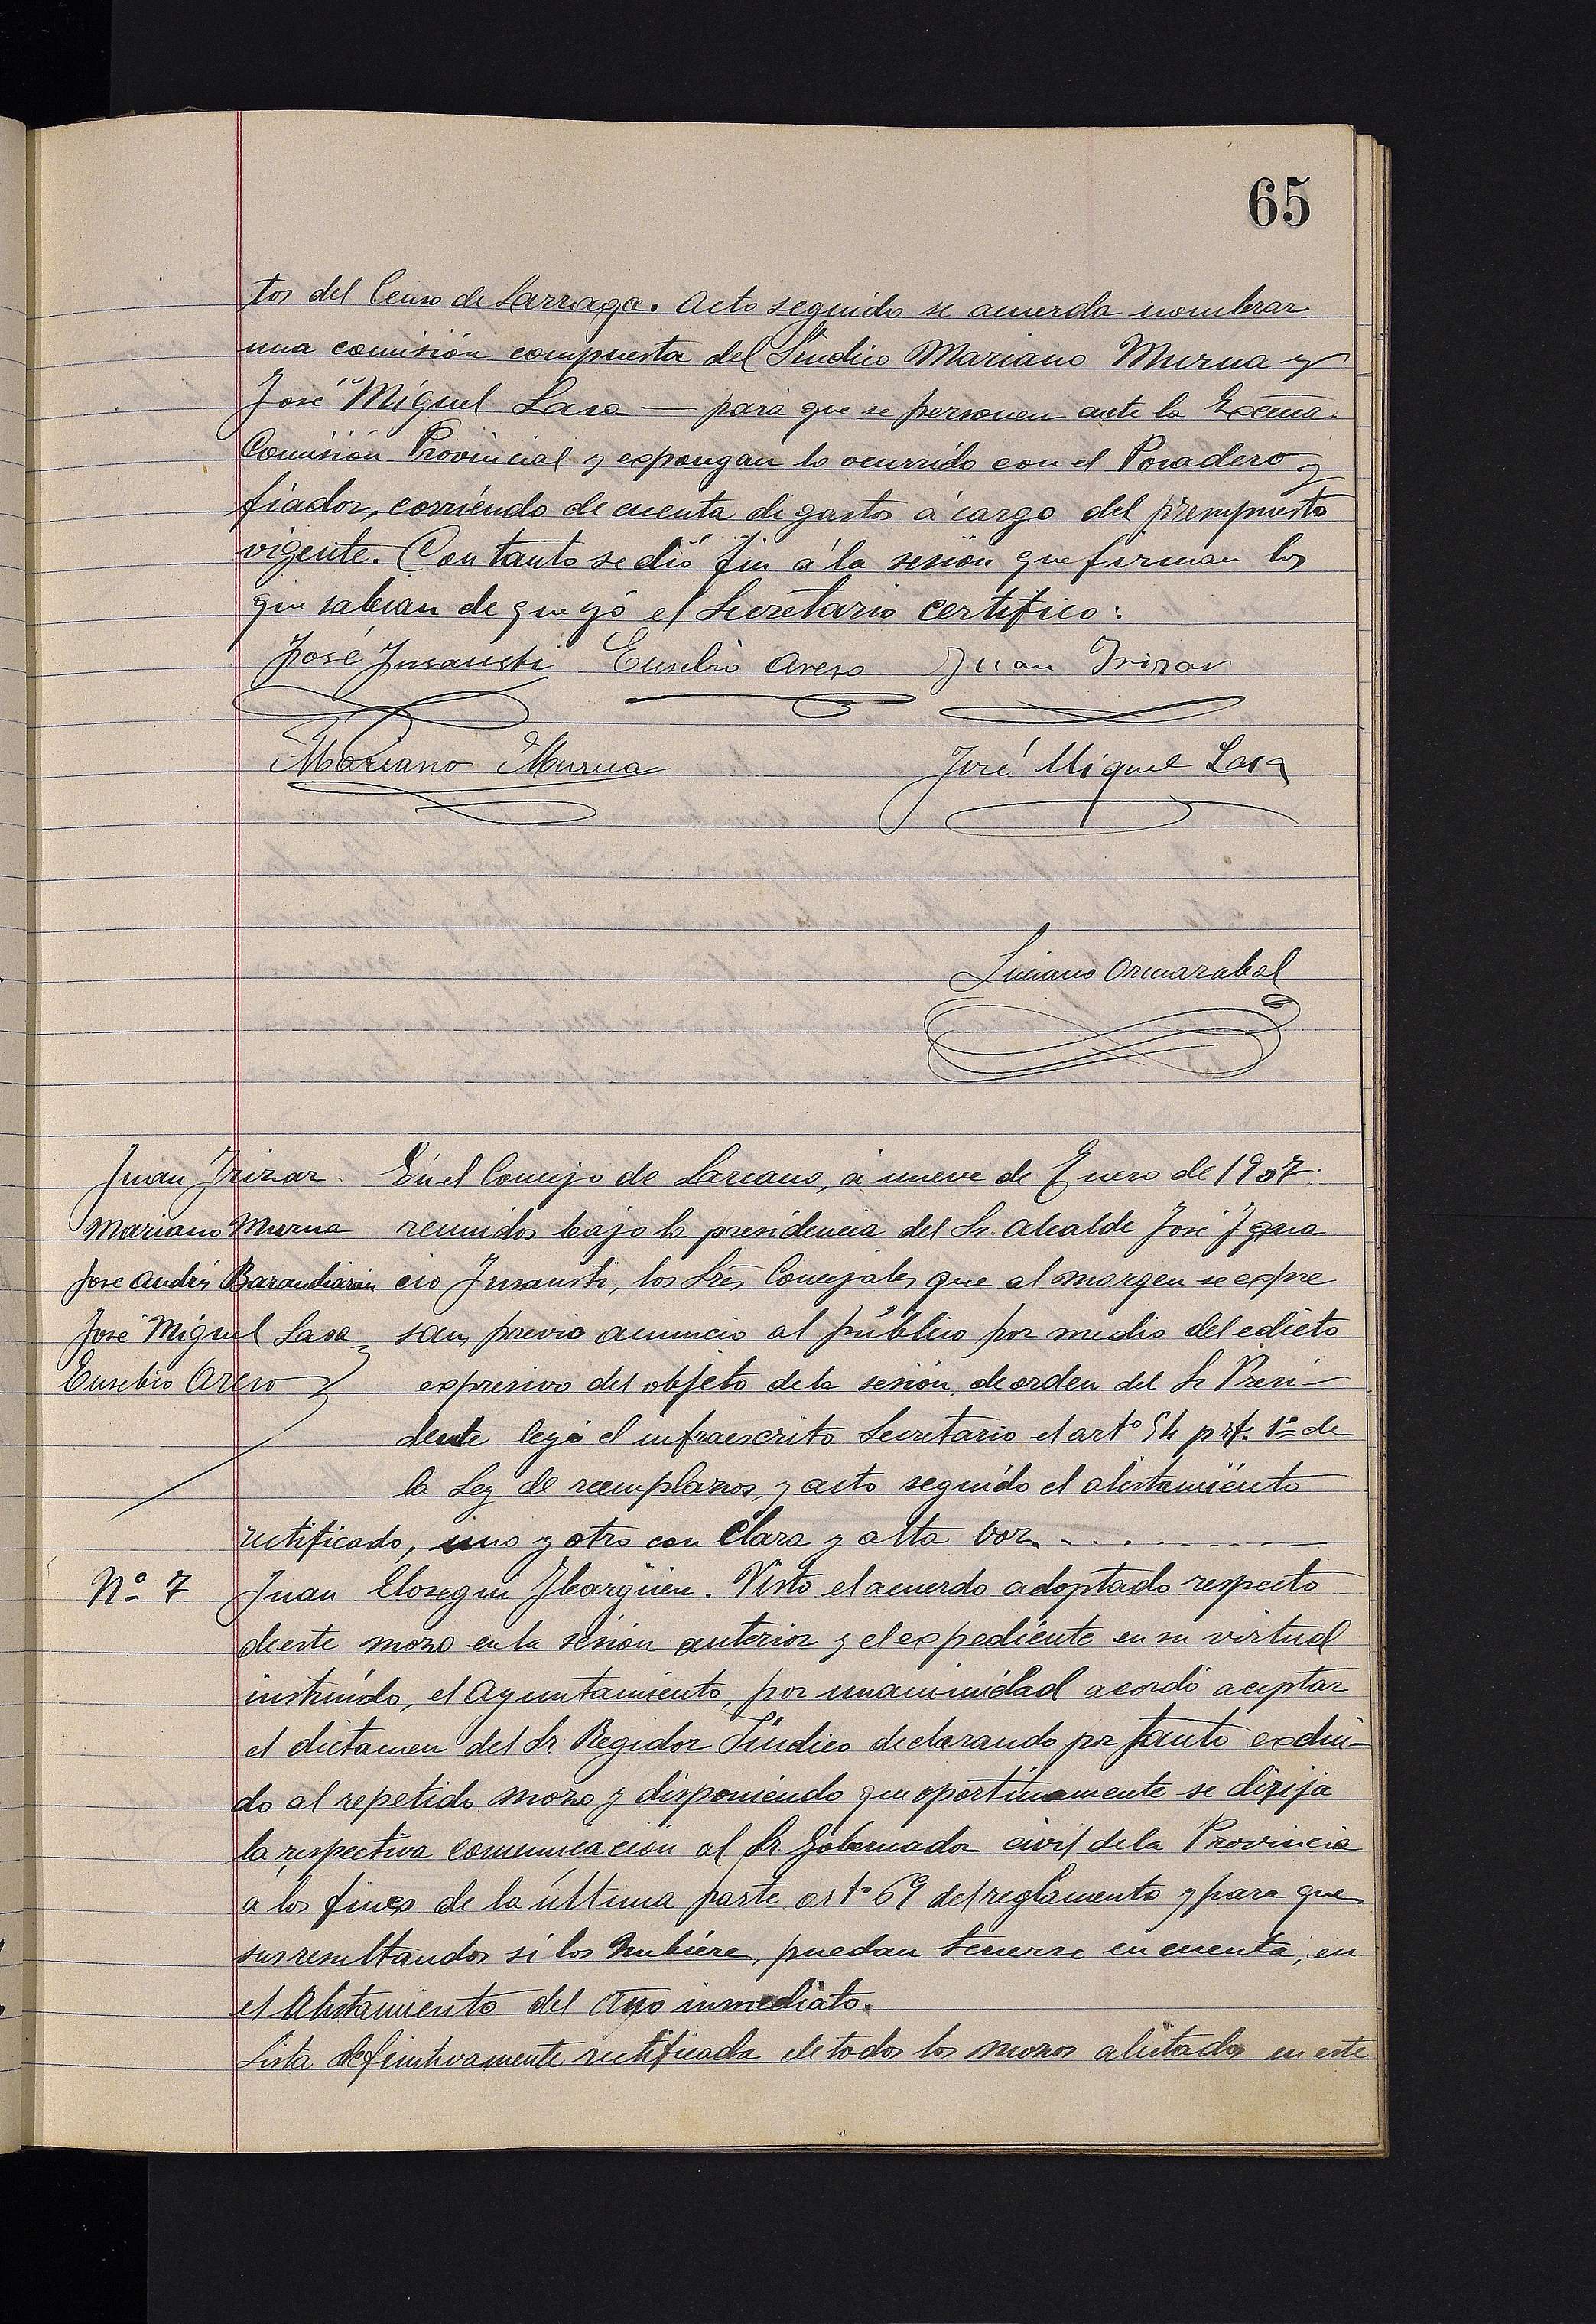 65
tos del Censo de Larraga. Acto seguido se acuerda nombrar
una comisión compuesta del Síndico Mariano Murua y
José Miguel Lasa — para que se personen ante la Excma.
Comisión Provincial y expongan lo ocurrido con el Posadero y
fiador, corriendo de cuenta de gastos á cargo del presupuesto
vigente. Con tanto se dió fin á la sesión que firman los
que sabian de que yó el Secretario certifico:
José Insausti Eusebio Areso Juan Irizar
Mariano Murua José Miguel Lasa
Luciano Ormazabal
Juan Irizar. En el Concejo de Lazcano, á nueve de Enero de 1907.
Mariano Murua reunidos bajo la presidencia del Sr. Alcalde José Igna
Jose Andrés Barandiarán cio Insausti, los Sres Concejales que al margen se expre
José Miguel Lasa y san, previo anuncio al público por medio del edicto
Eusebio Areso expresivo del objeto de la sesión, de orden del Sr Presi-
dente leyó el infraescrito Secretario el artº 54 prf. 1º de
la Ley de reemplazos, y acto seguido el alistamiento
rectificado, uno y otro con clara y alta voz.
Nº 7 Juan Elosegui Ibargüen. Visto el acuerdo adoptado respecto
de este mozo en la sesión anterior y el expediente en su virtud
instruído, el Ayuntamiento, por unanimidad acordó aceptar
el dictamen del Sr Regidor Síndico declarando por tanto exclui-
do al repetido mozo y disponiendo que oportunamente se dirija
la respectiva comunicacion al Sr. Gobernador civil de la Provincia
a los fines de la última parte artº 69 del reglamento y para que
sus resultandos si los hubiere, puedan tenerse en cuenta, en
el Alistamiento del año inmediato.
Lista definitivamente rectificada de todos los mozos alistados en este